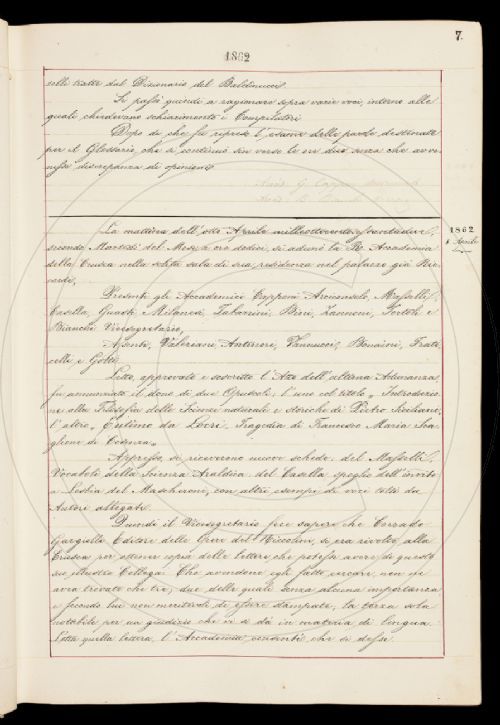 7.
1862
delle tratte dal Dizionario del Baldinucci.
Si passò quindi a ragionare sopra varie voci, intorno alle
quali chiedevano schiarimento i Compilatori
Dopo di che fu ripreso l'esame delle parole destinate
per il Glossario, che si continuò sin verso le ore due senza che avve-
nisse discrepanza di opinioni
La mattina dell'otto Aprile milleottocentosessantadue,
secondo Martedì del Mese, a ore dodici, si adunò la R. Accademia
della Crusca nella solita sala di sua residenza nel palazzo già Ric-
cardi,
1862
8 Aprile
Presenti gli Accademici Capponi Arciconsolo, Masselli,
Casella, Guasti, Milanesi, Tabarrini, Bini, Zannoni, Tortoli e
Bianchi Vicesegretario,
Assenti, Valeriani, Antinori, Vannucci, Bonaini, Frati-
celli, e Gotti,
Letto, approvato e soscritto l'Atto dell'ultima Adunanza,
fu annunziato il dono di due Opuscoli, l'uno col titolo „ Introduzio-
ne alla Filosofia delle Scienze naturali e storiche di Pietro Siciliani;
l'altro „ Eutimo da Locri, Tragedia di Francesco Maria Sca-
glione di Cosenza „
Appresso, si riceverono nuove schede: del Masselli,
Vocaboli della Scienza Araldica: del Casella spoglio dell'invito
a Lesbia del Mascheroni, con altri esempi di voci tolti da
Autori allegati.
Quindi il Vicesegretario fece sapere che Corrado
Gargiolli Editore delle Opere del Niccolini, si era rivolto alla
Crusca per ottenere copia delle lettere che potesse avere di questo
suo illustre Collega: Che avendone egli fatte cercare, non si
avea trovate che tre; due delle quali senza alcuna importanza
e secondo lui non meritevoli di essere stampate, la terza sola
notabile per un giudizio che vi si dà in materia di lingua.
Letta quella lettera, l'Accademia consentì che si desse